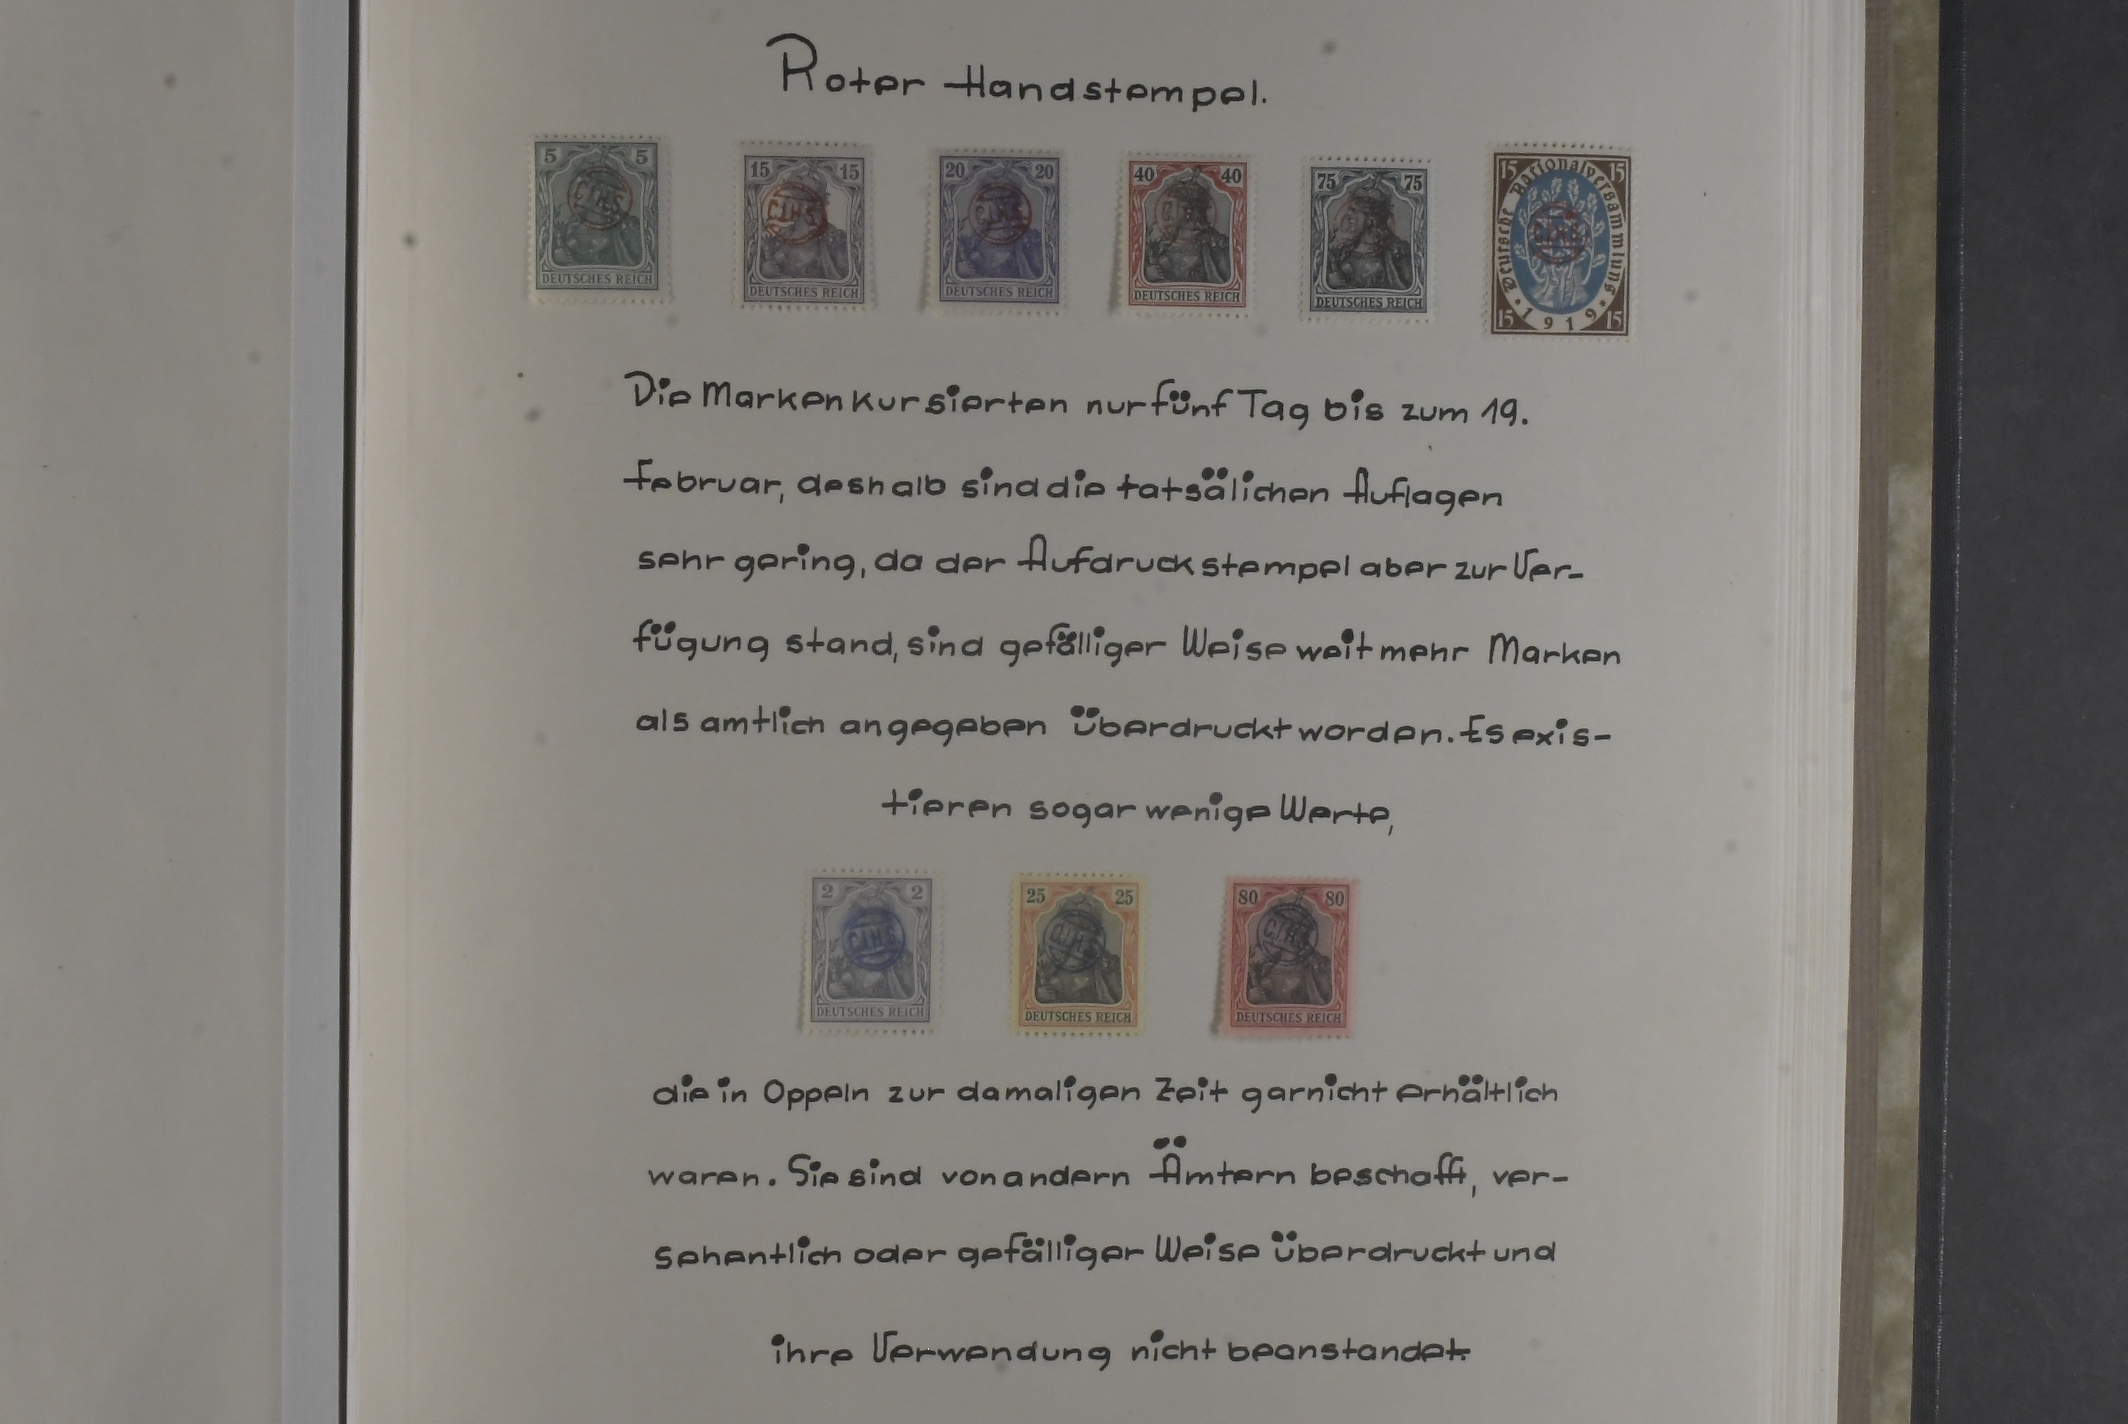 Roter Handstempel.
5 5
C.I.H.S.
DEUTSCHES REICH
15 15
C.I.H.S.
DEUTSCHES REICH
20 20
C.I.H.S.
DEUTSCHES REICH
40 40
DEUTSCHES REICH
75 75
DEUTSCHES REICH
15 15
Deutsche Nationalversammlung
C.I.H.S.
15 1919 15
Die Marken kursierten nur fünf Tag bis zum 19.
Februar, deshalb sind die tatsälichen Auflagen
sehr gering, da der Aufdruckstempel aber zur Ver-
fügung stand, sind gefälliger Weise weit mehr Marken
als amtlich angegeben überdruckt worden. Es exis-
tieren sogar wenige Werte,
2 2
C.I.H.S.
DEUTSCHES REICH
25 25
C.I.H.S.
DEUTSCHES REICH
80 80
C.I.H.S.
DEUTSCHES REICH
die in Oppeln zur damaligen Zeit garnicht erhältlich
waren. Sie sind von andern Ämtern beschafft, ver-
sehentlich oder gefälliger Weise überdruckt und
ihre Verwendung nicht beanstandet.